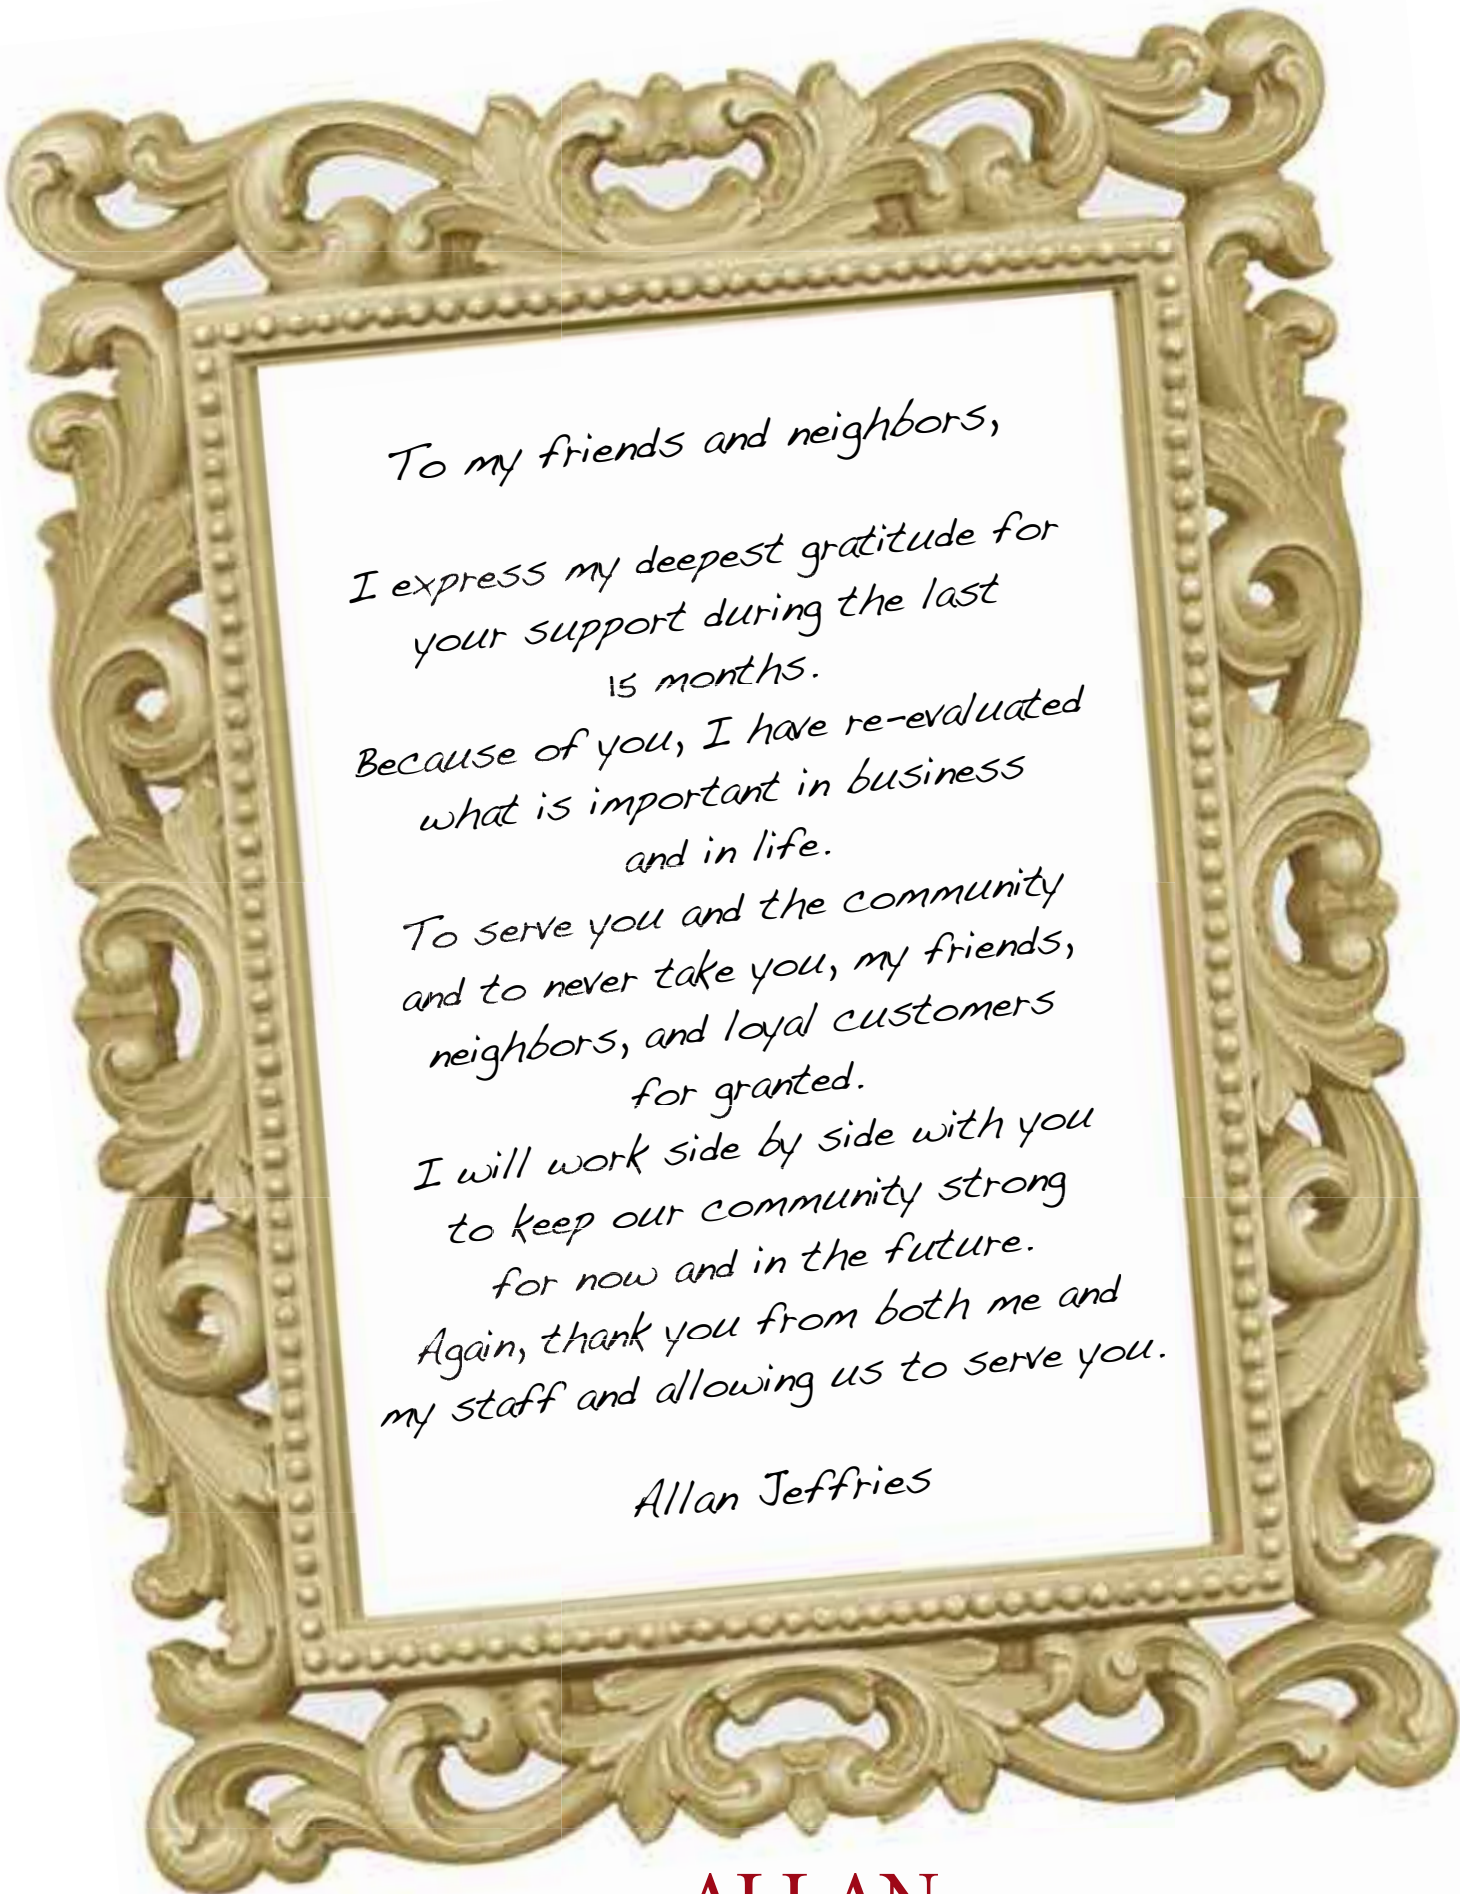 To my friends and neighbors,
I express my deepest gratitude for
your support during the last
15 months.
Because of you, I have re-evaluated
what is important in business
and in life.
To serve you and the community
and to never take you, my friends,
neighbors, and loyal customers
for granted.
I will work side by side with you
to keep our community strong
for now and in the future.
Again, thank you from both me and
my staff and allowing us to serve you.
Allan Jeffries
ALLAN